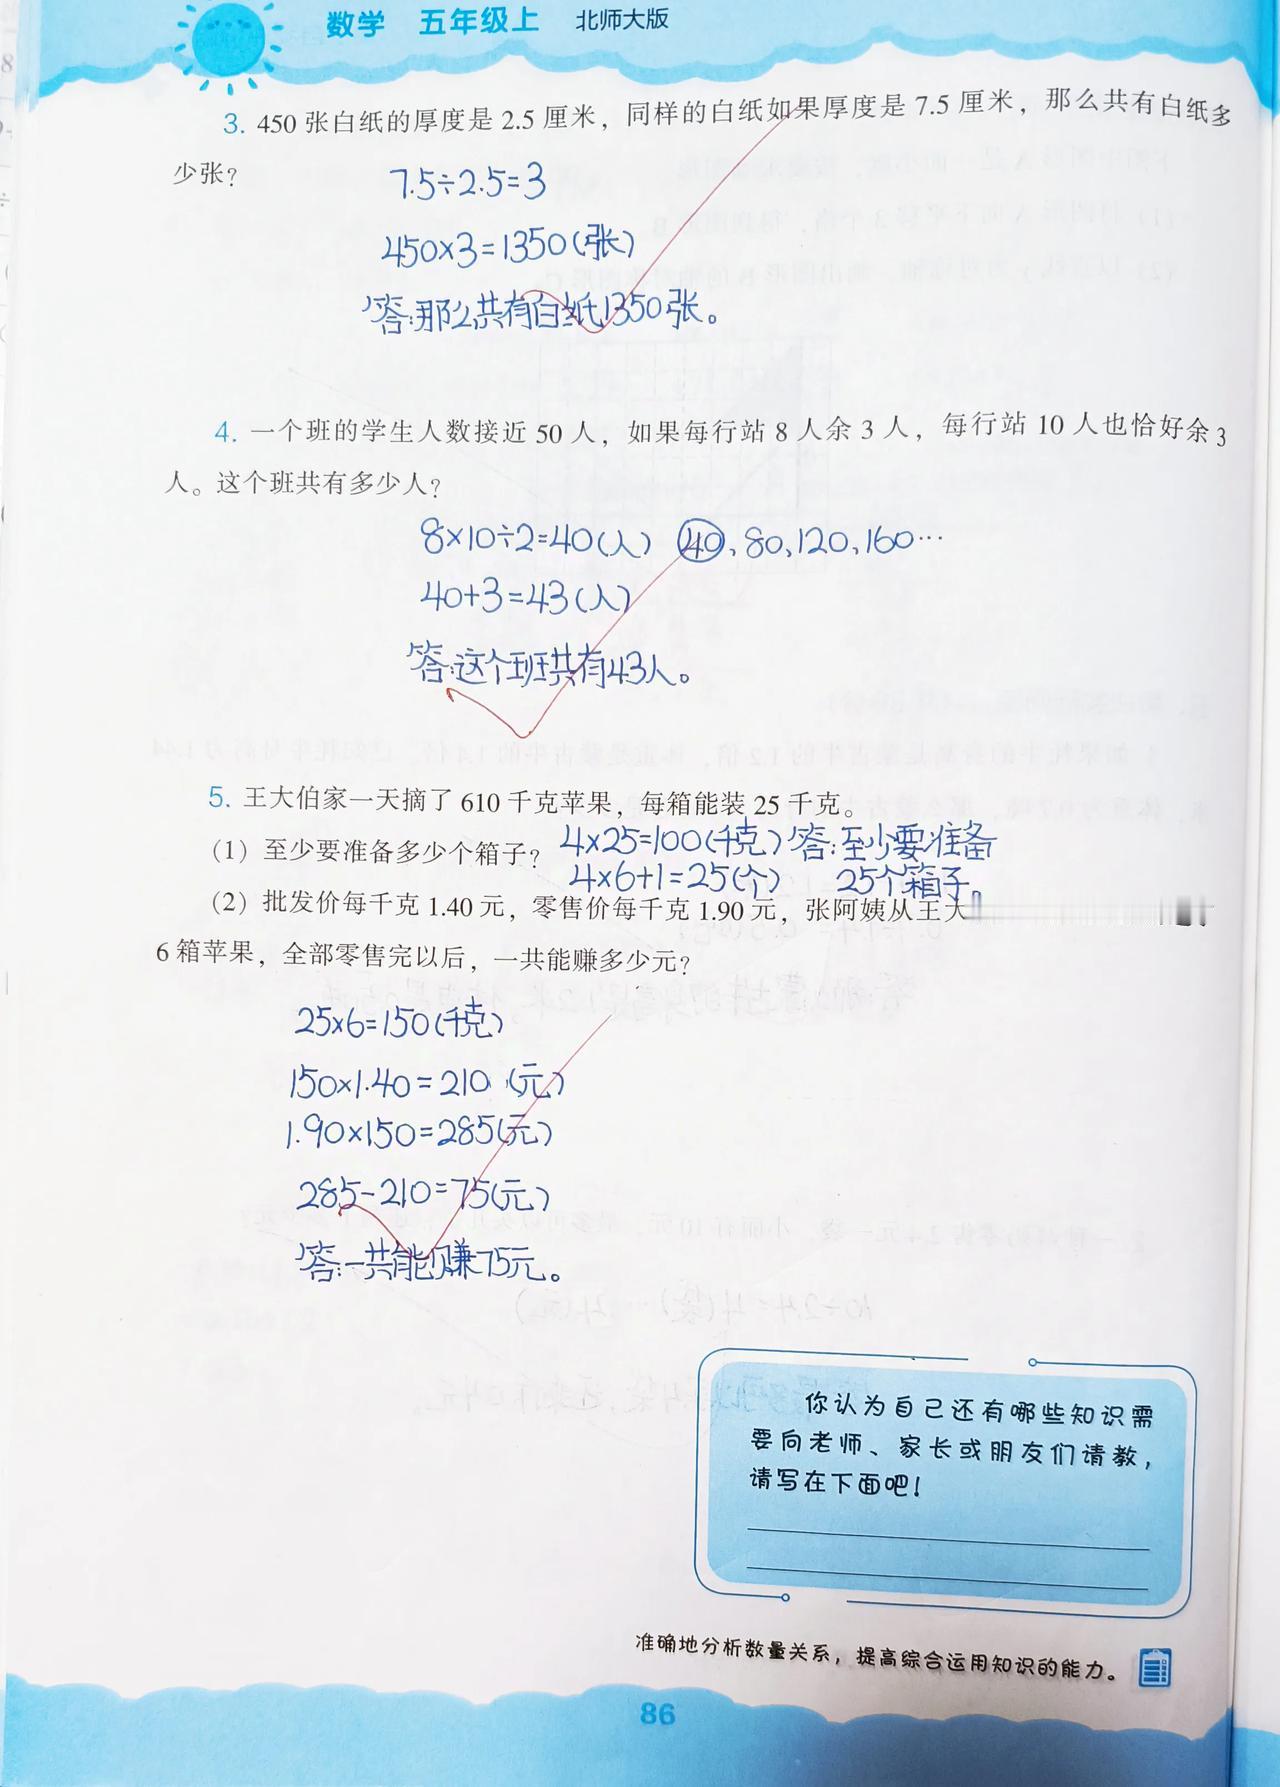 数学 五年级上 北师大版
3. 450 张白纸的厚度是 2.5 厘米，同样的白纸如果厚度是 7.5 厘米，那么共有白纸多
少张？
7.5÷2.5=3
450×3=1350(张)
答:那么共有白纸1350张。
4. 一个班的学生人数接近 50 人，如果每行站 8 人余 3 人，每行站 10 人也恰好余 3
人。这个班共有多少人？
8×10÷2=40(人) 40、80、120、160…
40+3=43(人)
答:这个班共有43人。
5. 王大伯家一天摘了 610 千克苹果，每箱能装 25 千克。
(1) 至少要准备多少个箱子？ 4×25=100(千克) 答:至少要准备
4×6+1=25(个) 25个箱子。
(2) 批发价每千克 1.40 元，零售价每千克 1.90 元，张阿姨从王大
6 箱苹果，全部零售完以后，一共能赚多少元？
25×6=150(千克)
150×1.40=210(元)
1.90×150=285(元)
285-210=75(元)
答:一共能赚75元。
你认为自己还有哪些知识需
要向老师、家长或朋友们请教，
请写在下面吧！
准确地分析数量关系，提高综合运用知识的能力。
86